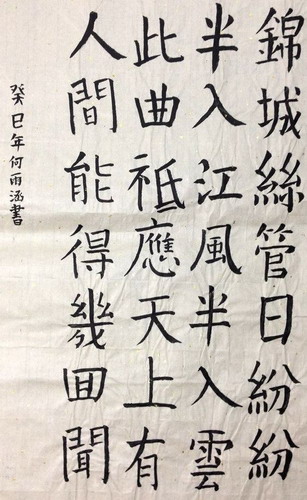 錦城絲管日紛紛
半入江風半入雲
此曲祗應天上有
人間能得幾回聞
癸巳年何雨涵書